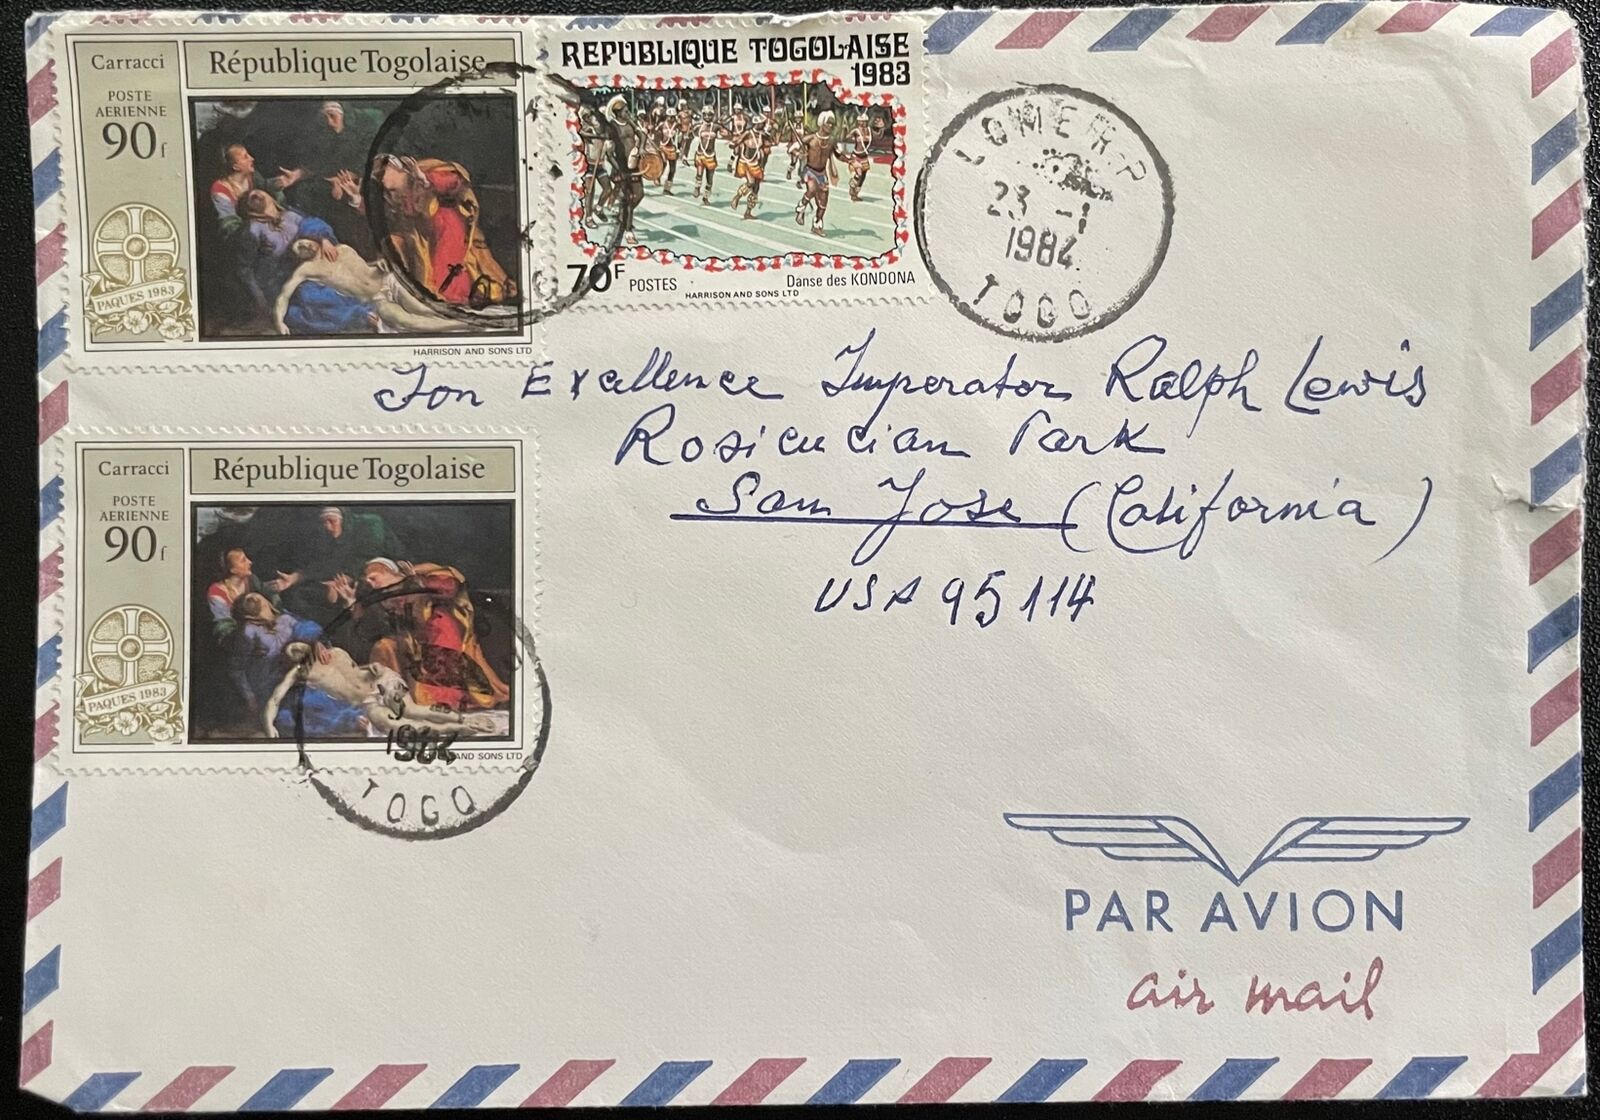 Carracci
République Togolaise
POSTE
AERIENNE
90f
PAQUES 1983
HARRISON AND SONS LTD
REPUBLIQUE TOGOLAISE
1983
70F POSTES
Danse des KONDONA
HARRISON AND SONS LTD
LOME R.P
23 -1
1984
TOGO
Son Excellence Imperator Ralph Lewis
Rosicucian Park
San Jose (California)
USA 95114
Carracci
République Togolaise
POSTE
AERIENNE
90f
PAQUES 1983
AND SONS LTD
1984
TOGO
PAR AVION
air mail